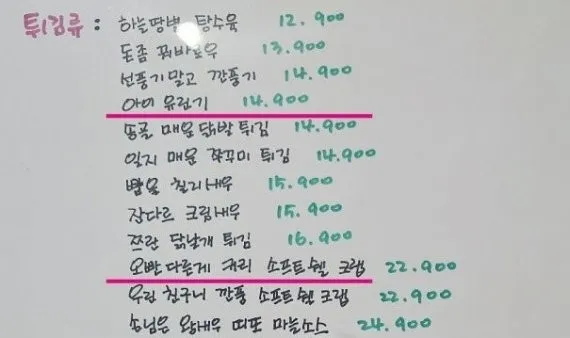 튀김류 : 하늘땅별 탕수육 12.900
돈좀 꿔바로우 13.900
선풍기말고 깐풍기 14.900
아이 유린기 14.900
송골 매운 닭발 튀김 14.900
일지 매운 쭈꾸미 튀김 14.900
뺨을 칠리새우 15.900
잔다르 크림새우 15.900
쯔란 닭날개 튀김 16.900
오빤 다룬게 커리 소프트 쉘 크랩 22.900
우린 친구니 깐풍 소프트 쉘 크랩 22.900
손님은 왕새우 띠또 마늘소스 24.900